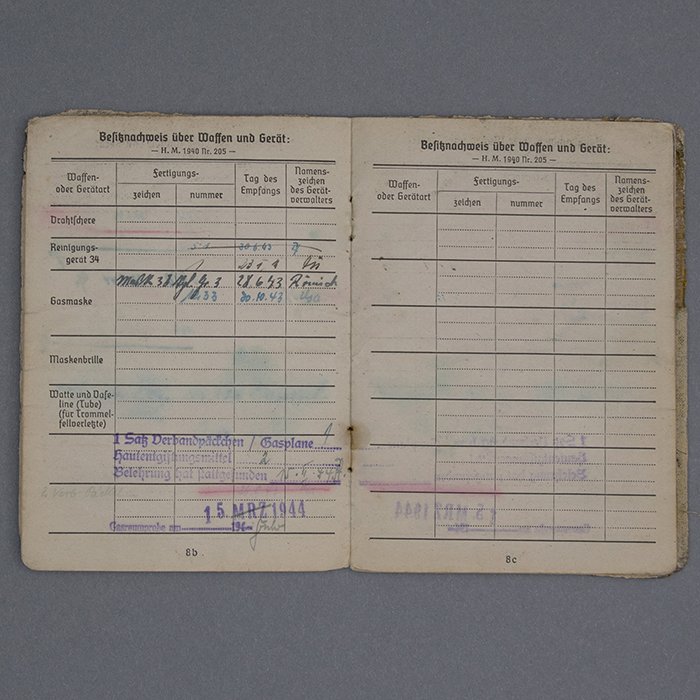 Besitznachweis über Waffen und Gerät:
— H. M. 1940 Nr. 205 —
Waffen- oder Gerätart
Fertigungs-
zeichen
nummer
Tag des Empfangs
Namens-zeichen des Gerät-verwalters
Drahtschere
Reinigungs-
gerät 34
20.6.43
28.6.43
Gasmaske
30.10.43
Maskenbrille
Watte und Vase-
line (Tube)
(für Trommel-
fellverletzte)
1 Satz Verbandpäckchen / Gasplane 1
Hautentgiftungsmittel 2
Belehrung hat stattgefunden
15. MRZ 1944
Gasraumprobe am 194
8b
Besitznachweis über Waffen und Gerät:
— H. M. 1940 Nr. 205 —
Waffen- oder Gerätart
Fertigungs-
zeichen
nummer
Tag des Empfangs
Namens-zeichen des Gerät-verwalters
8c